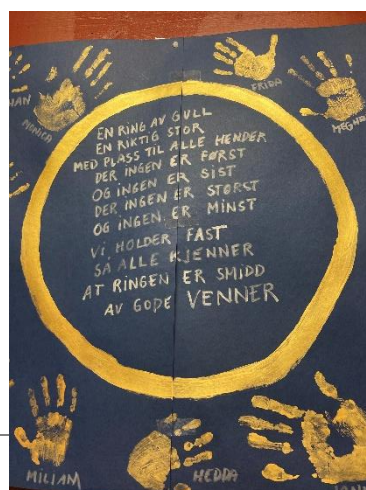 FRIDA
MONICA
EN RING AV GULL
EN RIKTIG STOR
MED PLASS TIL ALLE HENDER
DER INGEN ER FØRST
OG INGEN ER SIST
DER INGEN ER STØRST
OG INGEN ER MINST
VI HOLDER FAST
SÅ ALLE KJENNER
AT RINGEN ER SMIDD
AV GODE VENNER
MILIAM
HEDDA